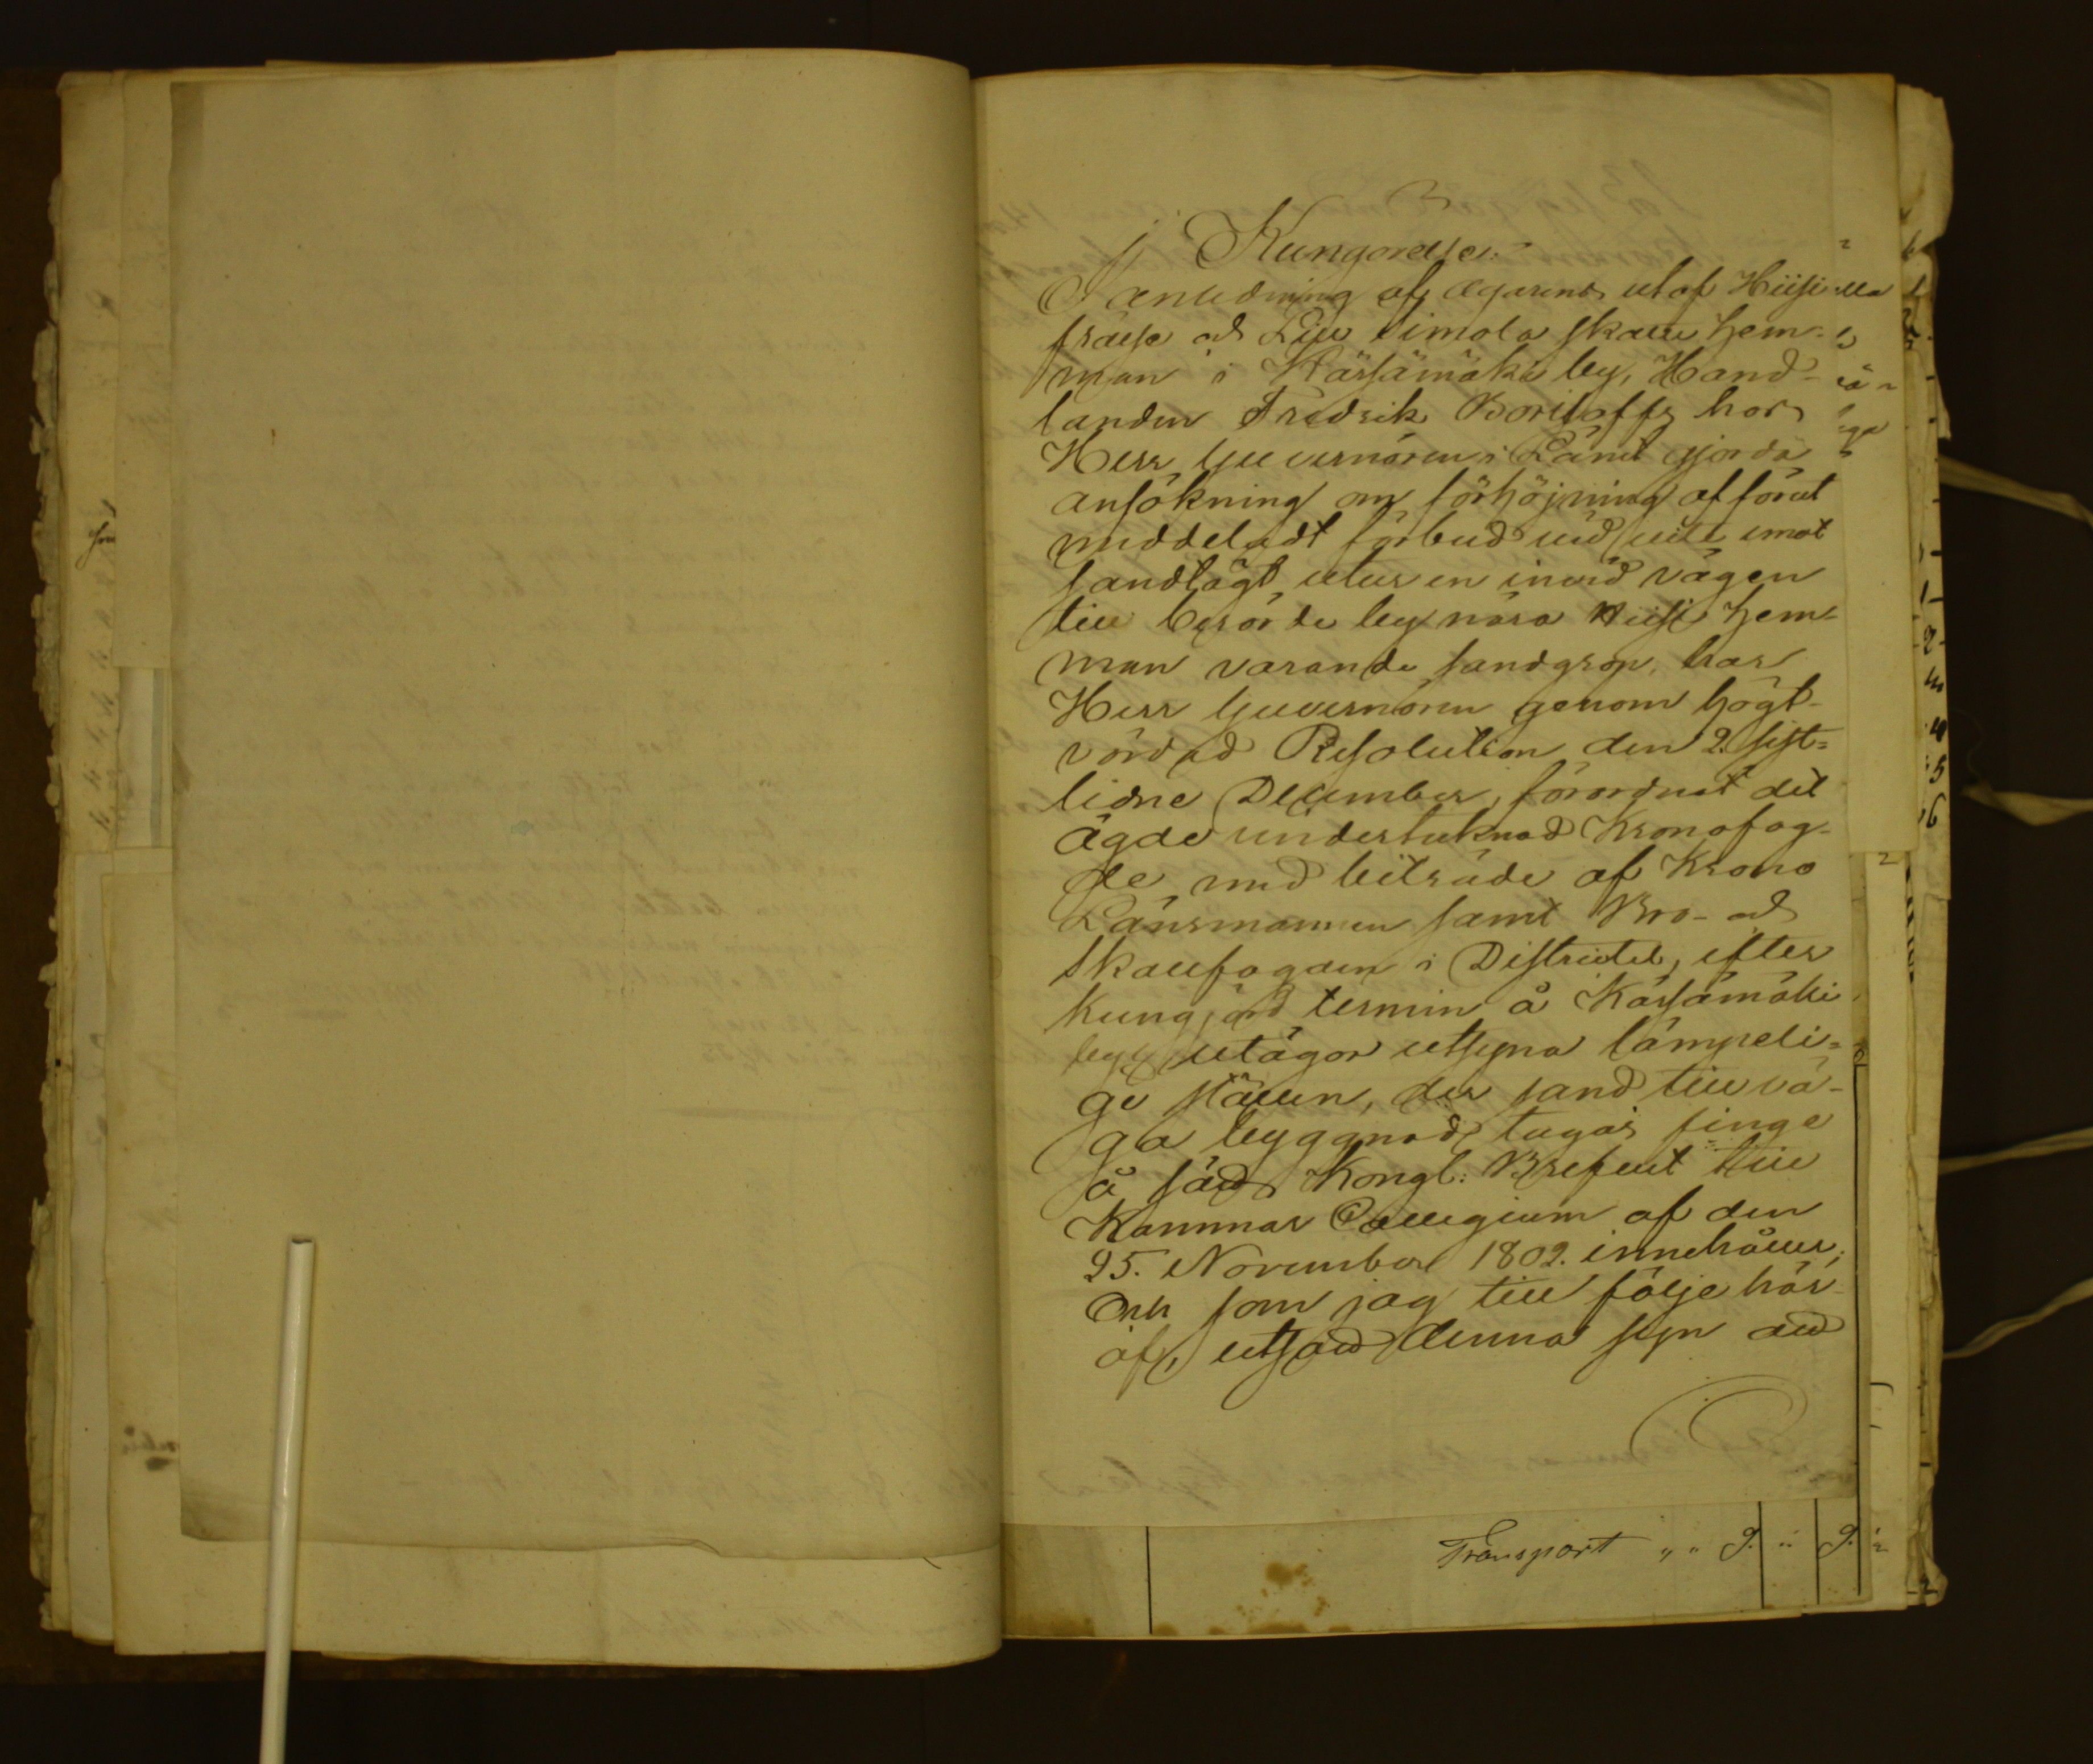 Kungörelse:
I anledning af ägarens utaf Hiisi
frälse och Lill Simola skatte hem-
man i Kärsämäki by, Hand-
landen Fredrik Boriloffs hos
Herr Guvernören i Länet gjorda
ansökning om förhöjning af förut
meddeladt förbud vid vite emot
sandtägt utur en invid vägen
till berörde by nära Hiisi hem-
man varande sandgrop, har
Herr Guvernören genom högt-
vördad Resolution den 2. sist-
lidne December, förordnat det
ägde undertecknad Kronofog-
de med biträde af Krono
Länsmannen samt Bro- och
skallfogden i Districtet, efter
kungjord termin å Kärsämäki
bys utägor utsyna lämpeli-
ge ställen, der sand till vä-
ga byggnad tagas finge
å sätt Kongl: Brefvet till
Kammar Collegium af den
25. November 1802. innehåller;
Och som jag till följe här-
af, utsatt denna syn att
Transport " " 9. " 9.